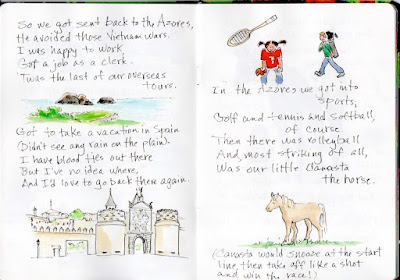 So we got sent back to the Azores,
He avoided those Vietnam wars.
I was happy to work,
Got a job as a clerk.
'Twas the last of our overseas
tours.
Got to take a vacation in Spain
(Didn't see any rain on the plain).
I have blood ties out there
But I've no idea where,
And I'd love to go back there again.
In the Azores we got into
sports,
Golf and tennis and softball,
of course
Then there was volleyball
And, most striking of all,
Was our little Canasta
the horse.
(Canasta would snooze at the start
line, then take off like a shot
and win the race!)